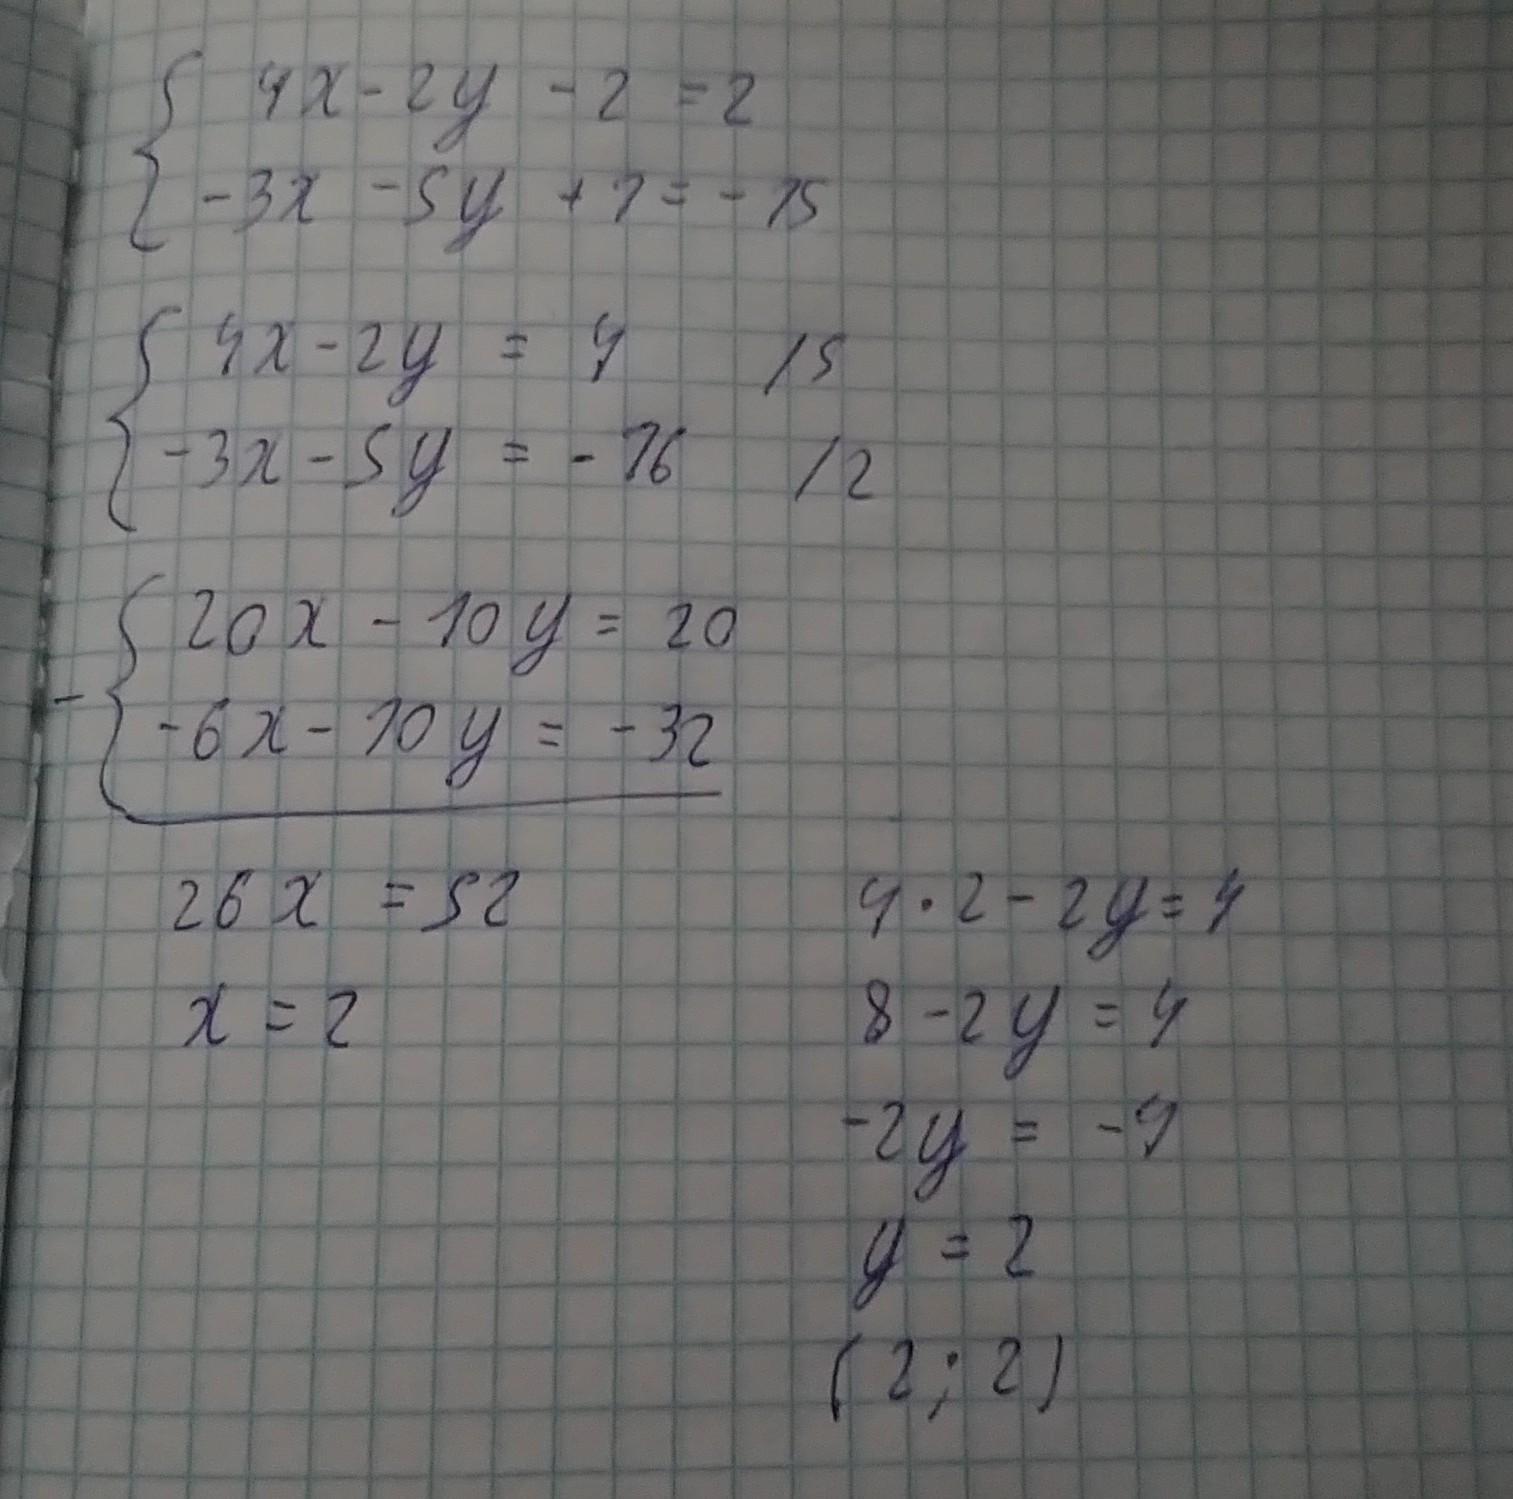 4x - 2y - 2 = 2
-3x - 5y + 1 = -15
4x - 2y = 4 /5
-3x - 5y = -16 /2
20x - 10y = 20
-
-6x - 10y = -32
26x = 52
x = 2
4 · 2 - 2y = 4
8 - 2y = 4
-2y = -4
y = 2
(2; 2)